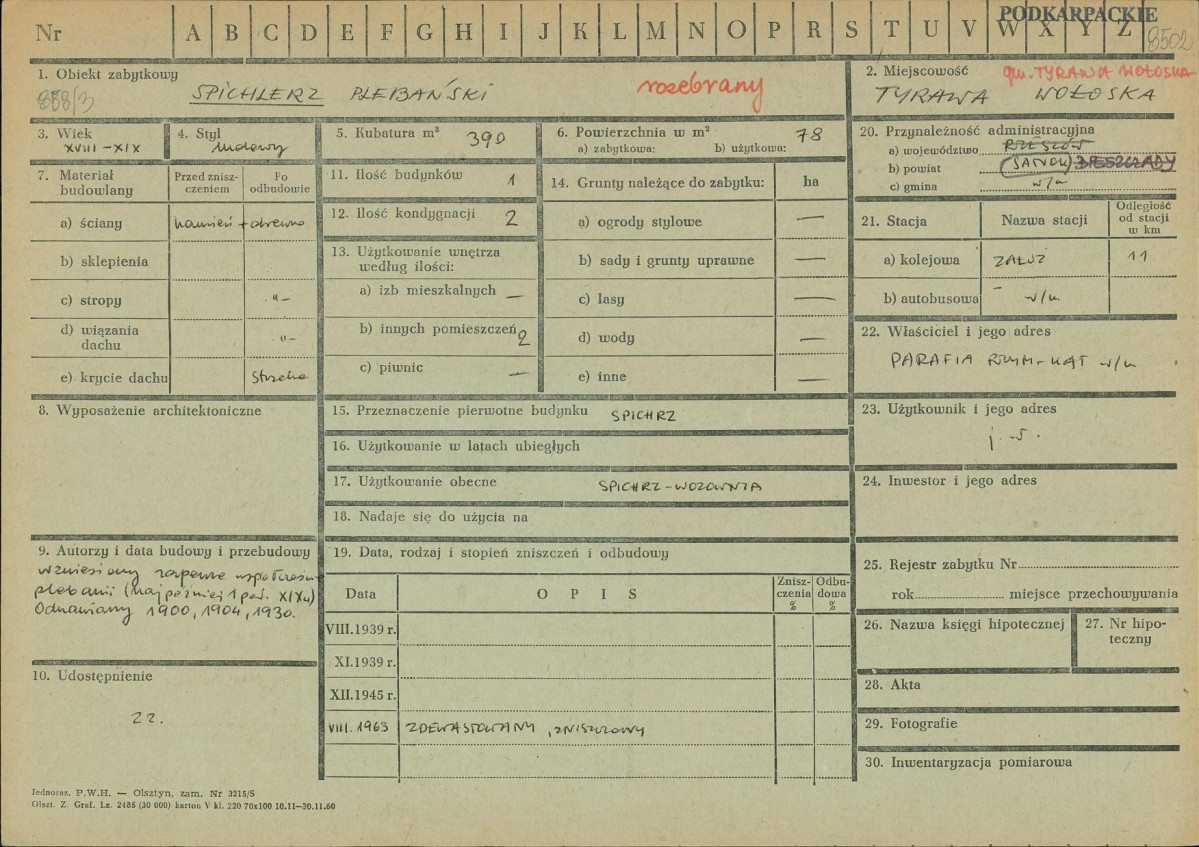 Nr A B C D E F G H I J K L M N O P R S T U V W X Y Z
PODKARPACKIE
8502
1. Obiekt zabytkowy
858/3
SPICHLERZ PLEBAŃSKI
rozebrany
2. Miejscowość gm. TYRAWA WOŁOSKA
TYRAWA WOŁOSKA
3. Wiek
XVIII-XIX
4. Styl
ludowy
5. Kubatura m³ 390
6. Powierzchnia w m² 78
a) zabytkowa: b) użytkowa:
20. Przynależność administracyjna
a) województwo RZESZÓW
b) powiat (SANOK) BIESZCZADY
c) gmina w/m
7. Materiał budowlany
Przed zniszczeniem
Po odbudowie
a) ściany kamień + drewno
b) sklepienia
c) stropy -"-
d) wiązania dachu -"-
e) krycie dachu Strzecha
11. Ilość budynków 1
12. Ilość kondygnacji 2
13. Użytkowanie wnętrza
według ilości:
a) izb mieszkalnych —
b) innych pomieszczeń 2
c) piwnic —
14. Grunty należące do zabytku: ha
a) ogrody stylowe —
b) sady i grunty uprawne —
c) lasy —
d) wody —
e) inne —
21. Stacja Nazwa stacji Odległość od stacji w km
a) kolejowa ZAŁUŻ 11
b) autobusowa w/m.
22. Właściciel i jego adres
PARAFIA RZYM-KAT w/m
8. Wyposażenie architektoniczne
15. Przeznaczenie pierwotne budynku SPICHRZ
16. Użytkowanie w latach ubiegłych
17. Użytkowanie obecne SPICHRZ-WOZOWNIA
18. Nadaje się do użycia na
23. Użytkownik i jego adres
j. w.
24. Inwestor i jego adres
9. Autorzy i data budowy i przebudowy
wzniesiony zapewne współcześn.
plebanii (najpóźniej 1 poł. XIXw)
Odnawiany 1900, 1904, 1930.
10. Udostępnienie
22.
19. Data, rodzaj i stopień zniszczeń i odbudowy
Data OPIS Zniszczenia % Odbudowa %
VIII.1939 r.
XI.1939 r.
XII.1945 r.
VIII.1963 ZDEWASTOWANY, zniszczony
25. Rejestr zabytku Nr
rok miejsce przechowywania
26. Nazwa księgi hipotecznej
27. Nr hipoteczny
28. Akta
29. Fotografie
30. Inwentaryzacja pomiarowa
Jednoraz. P.W.H. — Olsztyn, zam. Nr 3215/S
Olszt. Z. Graf. Lz. 2485 (30 000) karton V kl. 220 70x100 10.11—30.11.60